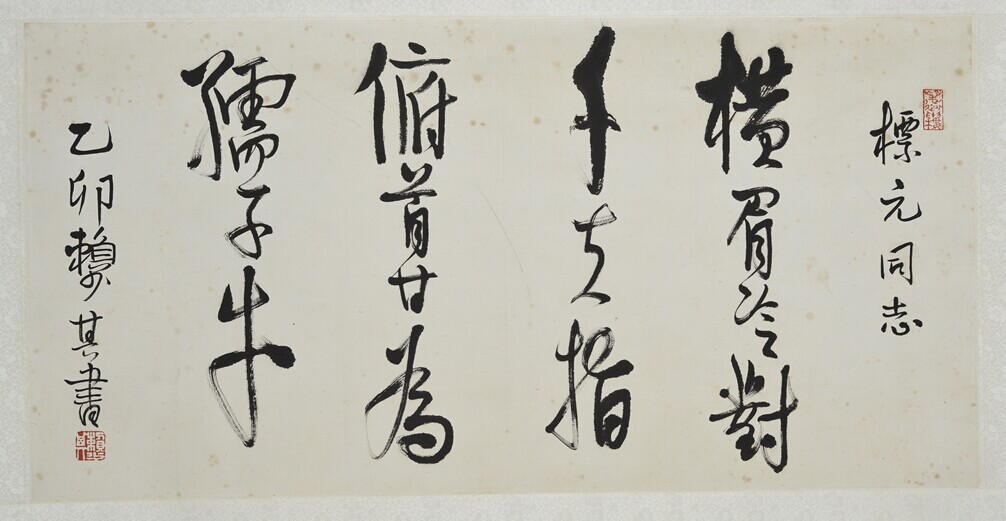 標元同志
橫眉冷對
千夫指
俯首甘為
孺子牛
乙卯賴少其書